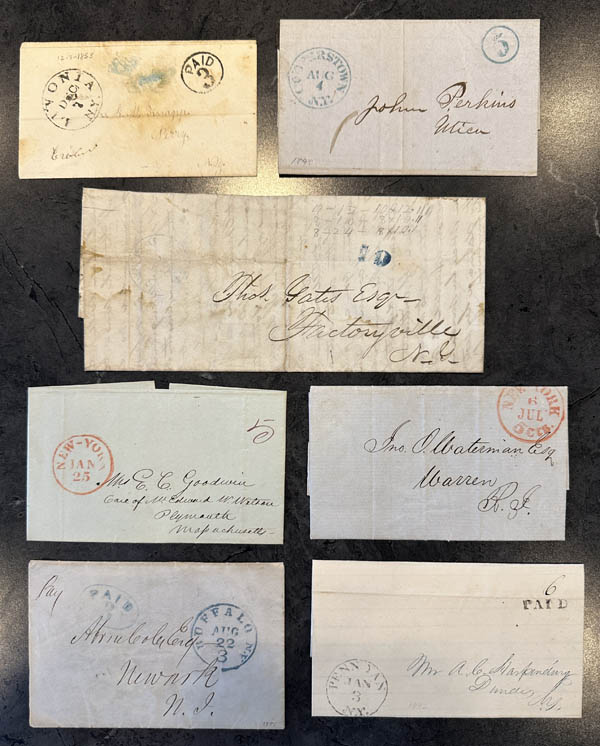 12-7-1853
LIVONIA N.Y.
DEC
7
PAID
3
COOPERSTOWN
AUG
4
N.Y.
5
John Perkins
Utica
1848
10
Thos. Gates Esqr
Factoryville
N.Y.
NEW-YORK
JAN
25
5
Mrs E. C. Goodwin
Care of Mr Edward W. Watson
Plymouth
Massachusetts
NEW-YORK
6
JUL
5 cts.
Jno. O. Waterman Esq
Warren
R. I.
Pay
PAID
BUFFALO N.Y.
AUG
22
3
Newark
N. J.
6
PAID
PENN YAN
JAN
3
N.Y.
Mr A. C. Harpending
Dundee
N.Y.